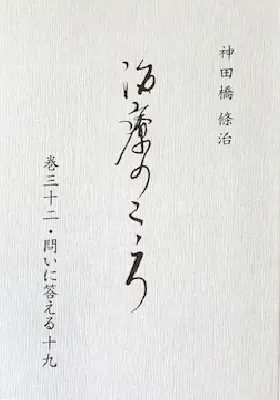 神田橋 條治
治療のこゝろ
巻三十二・問いに答える 十九